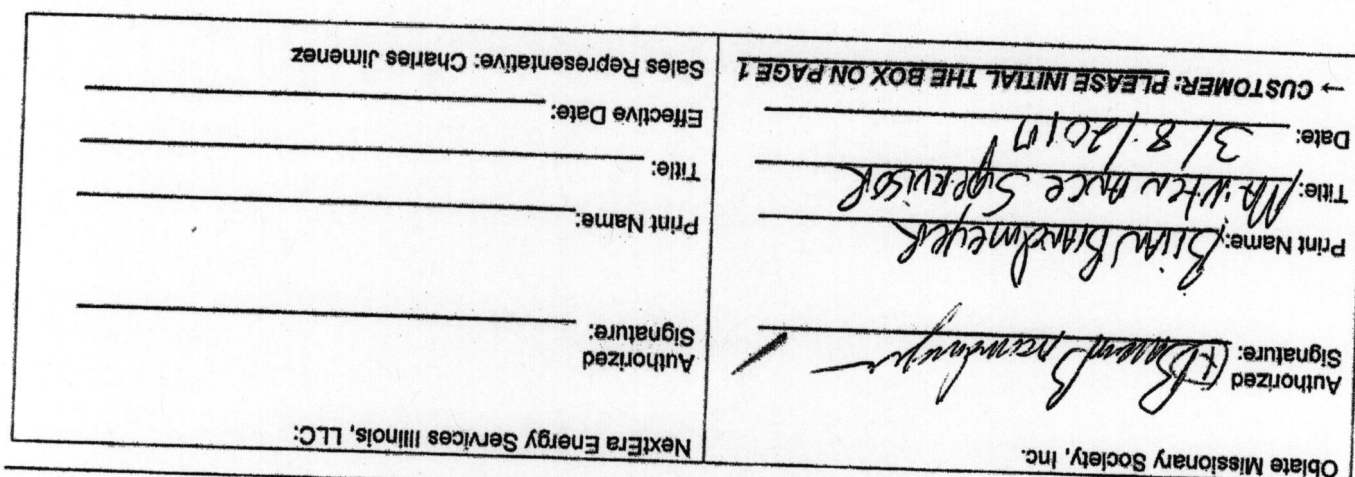 Oblate Missionary Society, Inc.
Authorized
Signature: Brian Brandmeyer
Print Name: Brian Brandmeyer
Title: Maintenance Supervisor
Date: 3/8/2017
→ CUSTOMER: PLEASE INITIAL THE BOX ON PAGE 1
NextEra Energy Services Illinois, LLC:
Authorized
Signature:
Print Name:
Title:
Effective Date:
Sales Representative: Charles Jimenez